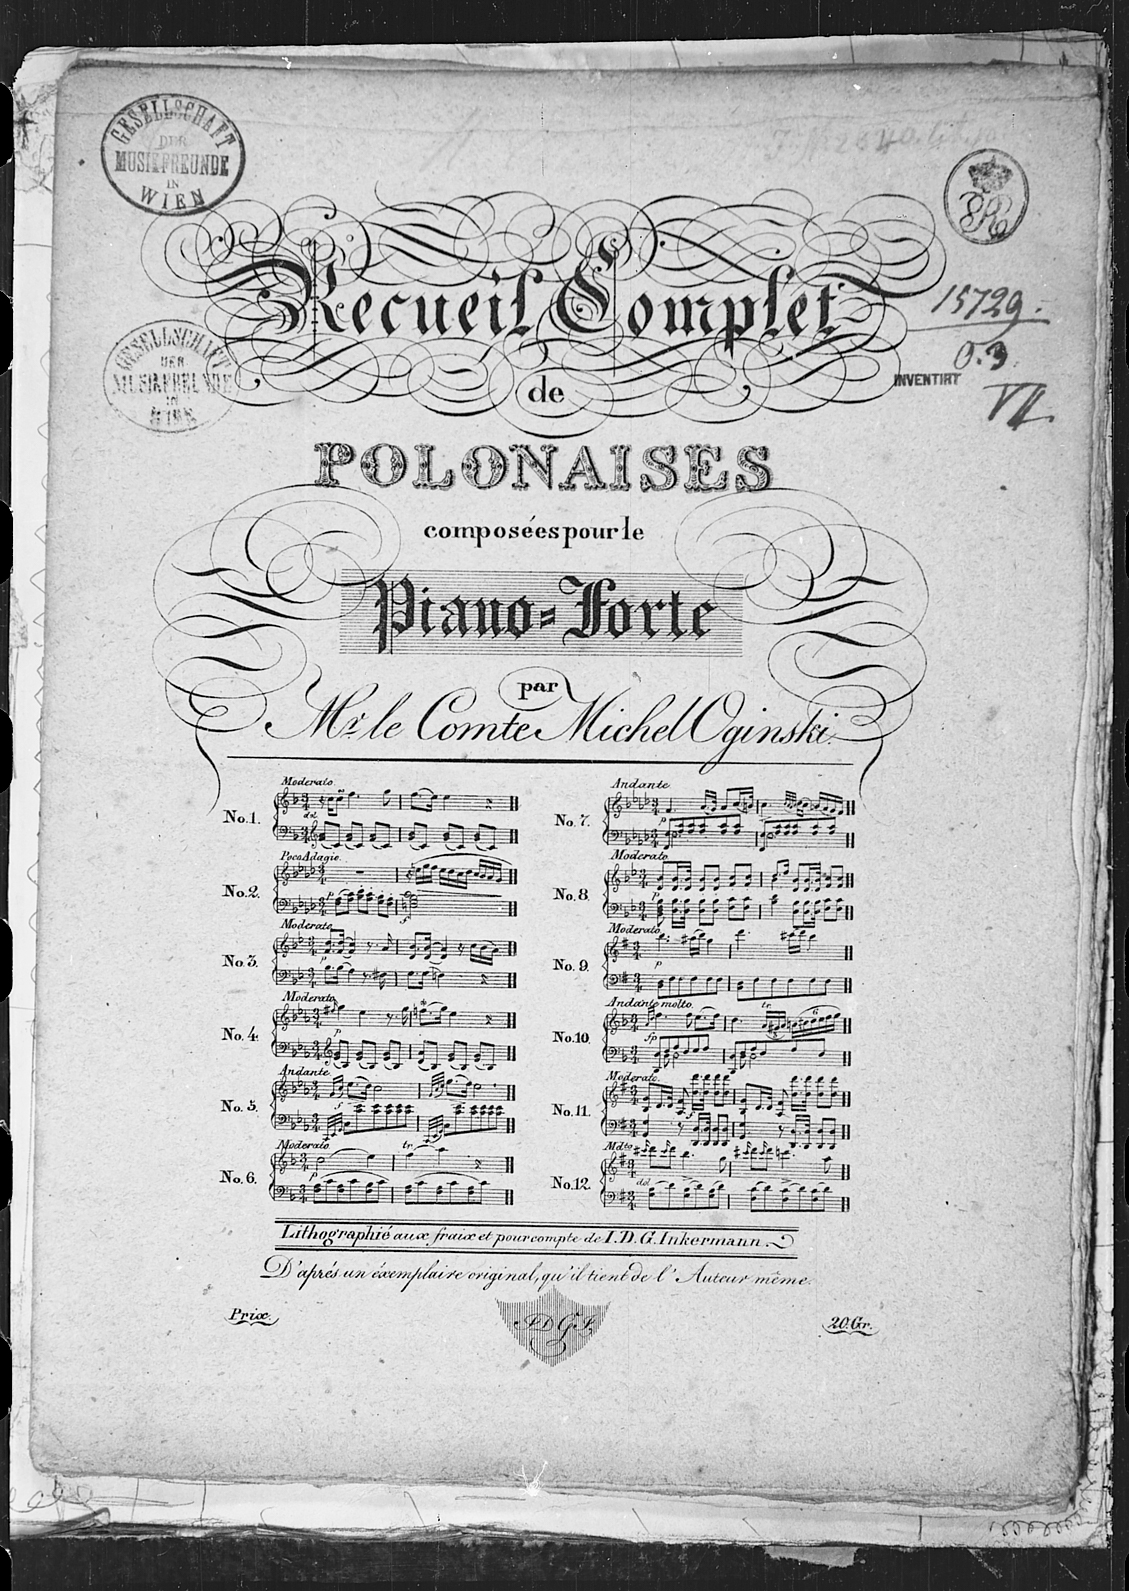 GESELLSCHAFT
DER
MUSIKFREUNDE
IN
WIEN
Recueil Complet
15729.
0.3.
INVENTIRT
VII.
GESELLSCHAFT
DER
MUSIKFREUNDE
IN
WIEN
de
POLONAISES
composées pour le
Piano=Forte
par
Mr. le Comte Michel Oginski.
Moderato
No. 1.
dol
Poco Adagio.
No. 2.
p
Moderato
No. 3.
p
Moderato
No. 4.
p
Andante
No. 5.
Moderato
tr.
No. 6.
p
Andante
No. 7.
p
Moderato
No. 8.
p
Moderato
No. 9.
p
Andante molto.
tr.
No. 10.
fp
Moderato.
No. 11.
Mdto
No. 12.
dol
Lithographié aux fraix et pour compte de I. D. G. Inkermann.
D'aprés un éxemplaire original, qu'il tient de l' Auteur même.
Prix.
20. Gr.